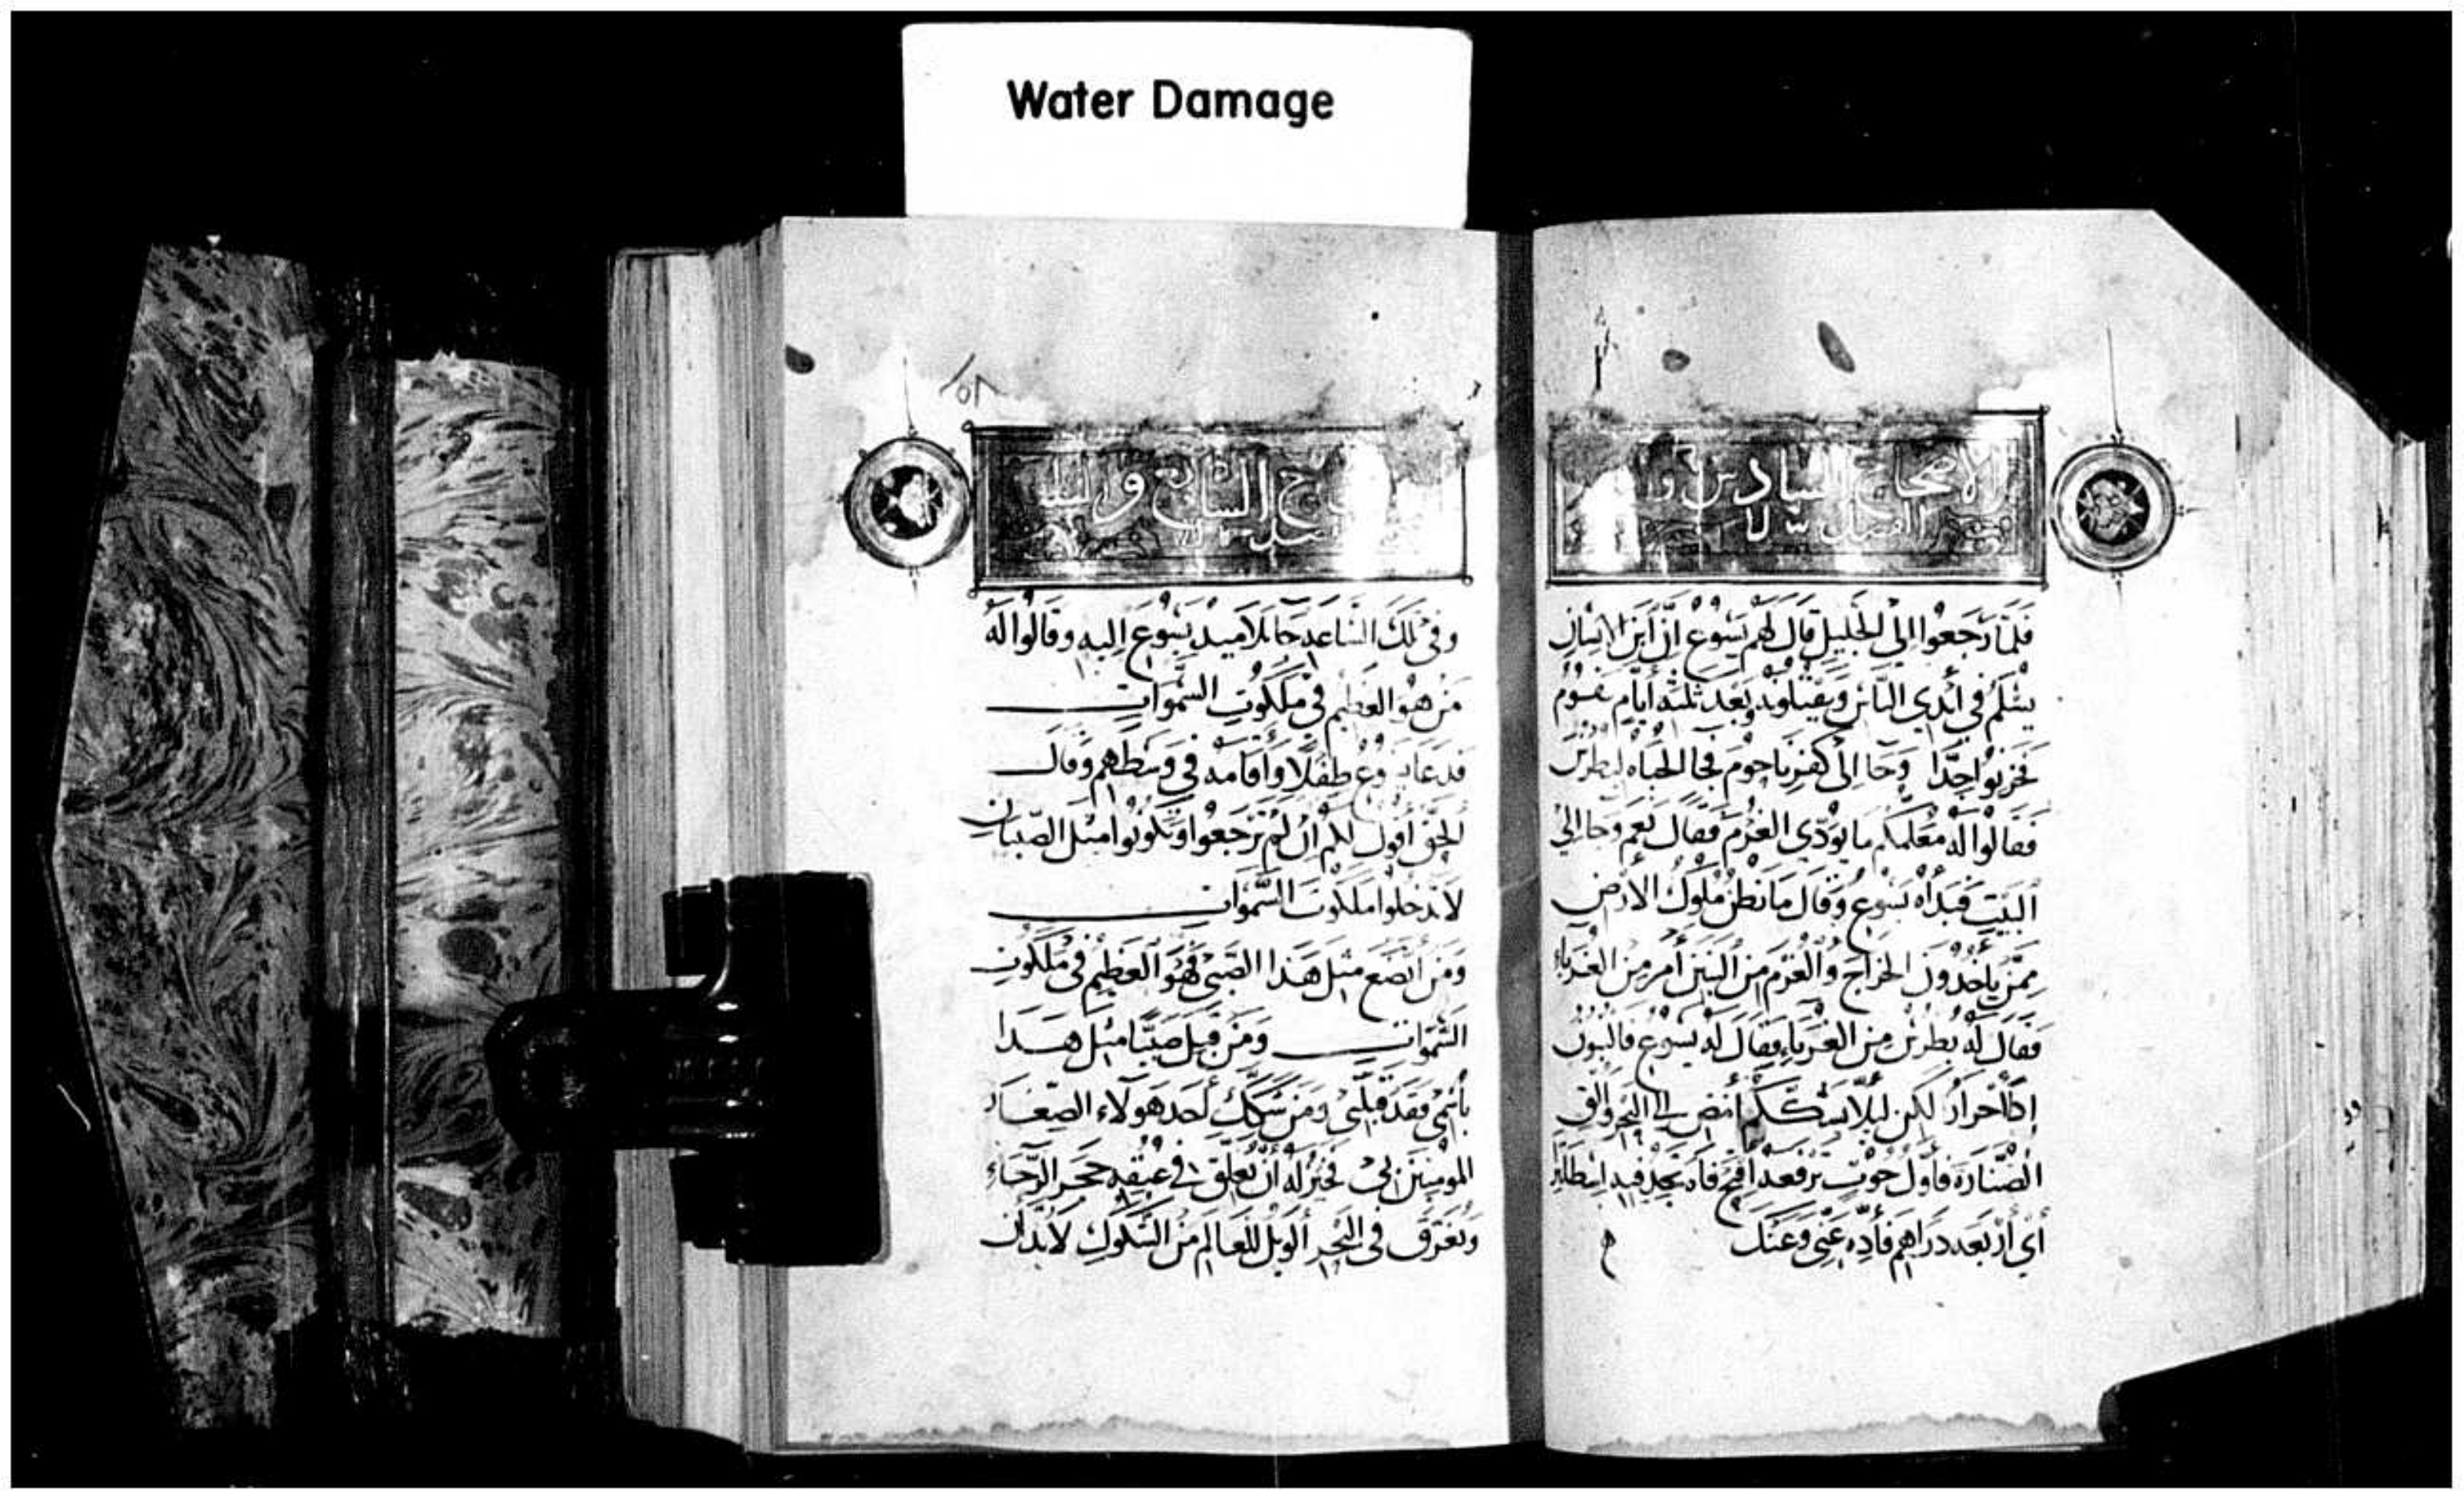 Water Damage
الاصحاح السادس
الفصل
فلما رجعوا إلى الجليل قال لهم يسوع إنّ ابن الانسان
يسلم في أيدي الناس ويقتلونه وبعد ثلثه أيام يقوم
فحزنوا جدّا وجا إلى كفرناحوم فجا الجباه لبطرس
فقالوا له معلمكم ما يؤدّي الغرم فقال نعم وجا إلى
البيت فبدأه يسوع وقال ما تظن ملوك الأرض
ممن يأخذون الخراج والغرم من البنين أم من الغرباء
فقال له بطرس من الغرباء فقال له يسوع فالبنون
إذا أحرار لكن ليلا نشككهم أمض إلى البحر وألق
الصّنارة فأول حوت ترفعه افتح فاه تجد فيه
أي أربعه دراهم فأدّه عني وعنك
٢٥٨
السابع و
وفي تلك الساعه جا تلاميذ يسوع إليه وقالوا له
من هو العظيم في ملكوت السموات
فدعا يسوع طفلا وأقامه في وسطهم وقال
الحق أقول لكم إن لم ترجعوا وتكونوا مثل الصبيان
لا تدخلوا ملكوت السموات
ومن اتضع مثل هذا الصبي فهو العظيم في ملكوت
السموات ومن قبل صبيّا مثل هذا
باسمي فقد قبلني ومن شكك أحد هولاء الصغار
المومنين بي فخير له أن تعلق في عنقه حجر الرحاء
ويغرق في البحر الويل للعالم من الشكوك لابد أن